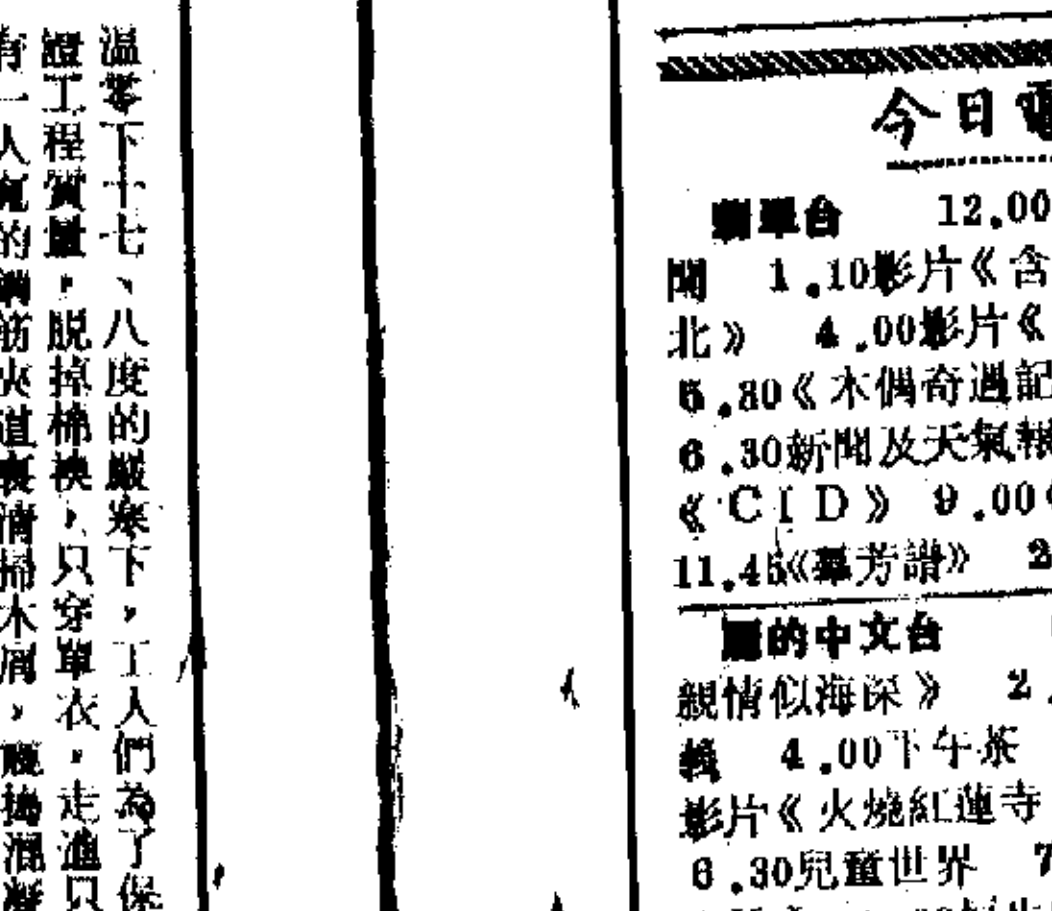 温零下十七、八度的嚴寒下，工人們為了保
證工程質量，脱掉棉襖，只穿單衣，走進只
有一人寬的鋼筋夾道裏清掃木屑，混凝
今日電
翡翠台 12.00
聞 1.10影片《含
北》 4.00影片《
5.30《木偶奇遇記
6.30新聞及天氣報
《CID》 9.00
11.45《羣芳譜》
麗的中文台
親情似海深》 2
輯 4.00下午茶
影片《火燒紅蓮寺
6.30兒童世界 7